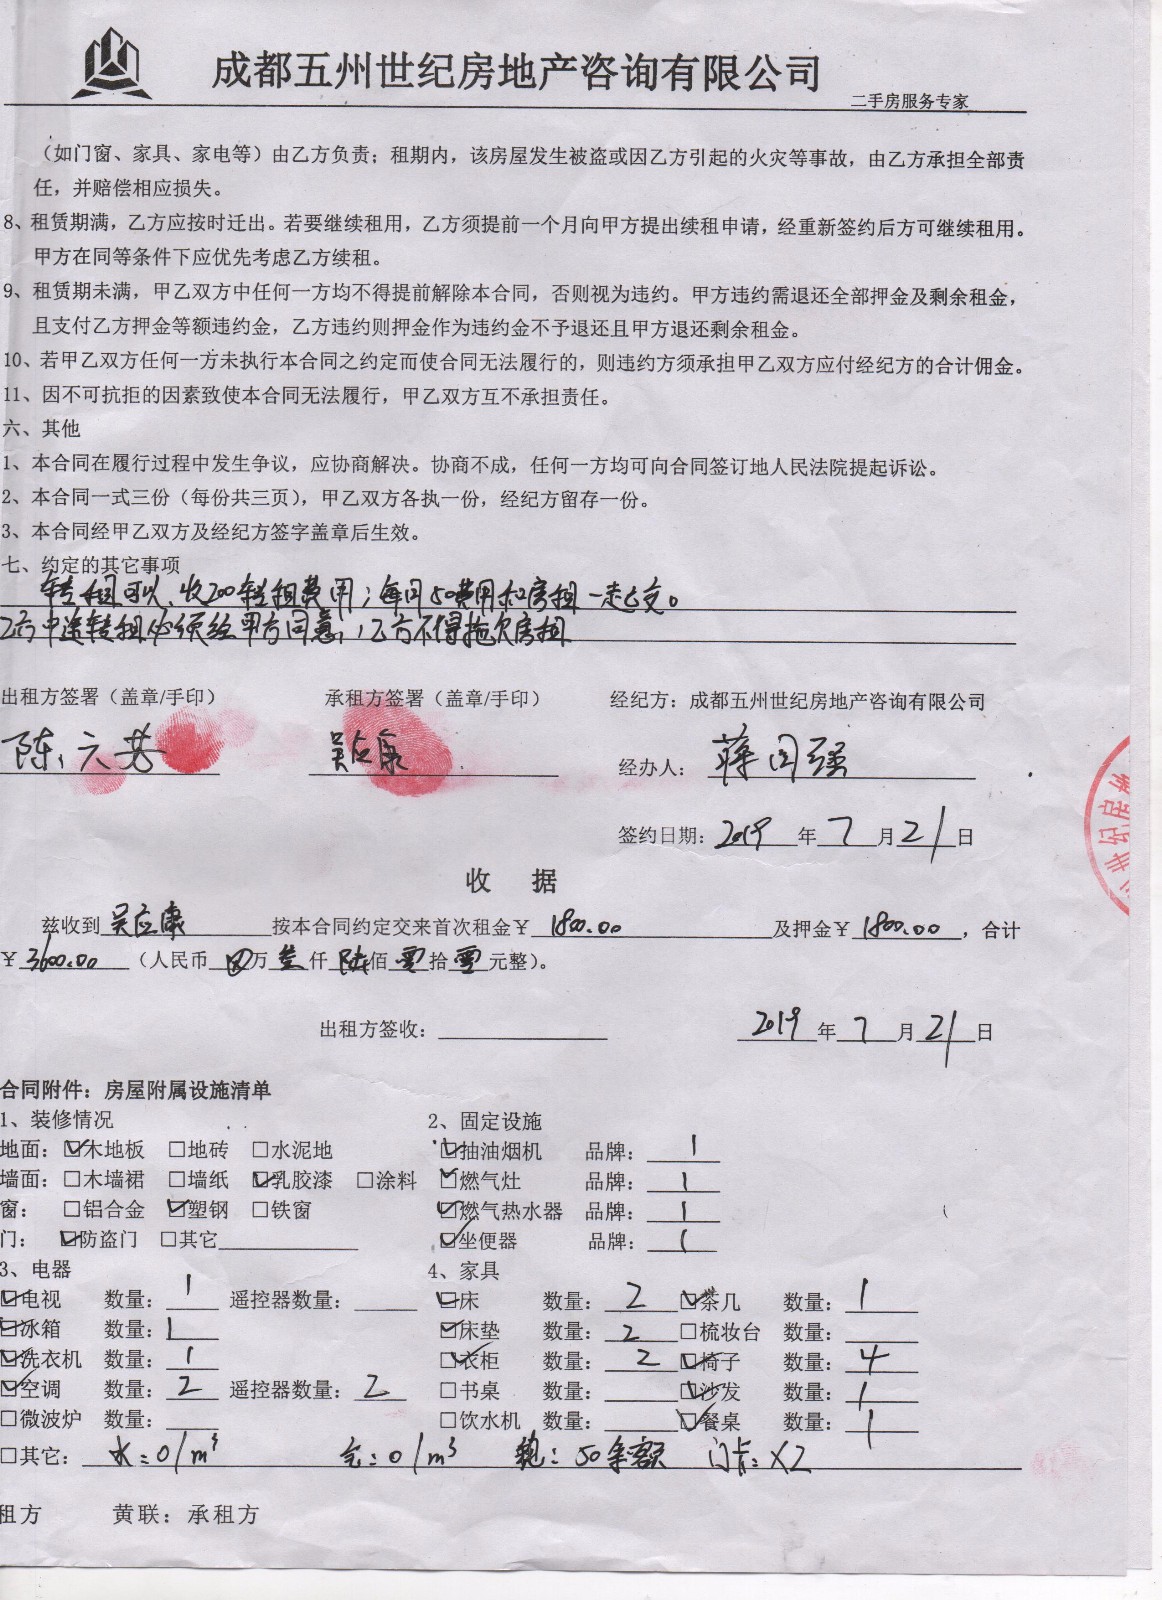 成都五州世纪房地产咨询有限公司
二手房服务专家
（如门窗、家具、家电等）由乙方负责；租期内，该房屋发生被盗或因乙方引起的火灾等事故，由乙方承担全部责
任，并赔偿相应损失。
8、租赁期满，乙方应按时迁出。若要继续租用，乙方须提前一个月向甲方提出续租申请，经重新签约后方可继续租用。
甲方在同等条件下应优先考虑乙方续租。
9、租赁期未满，甲乙双方中任何一方均不得提前解除本合同，否则视为违约。甲方违约需退还全部押金及剩余租金，
且支付乙方押金等额违约金，乙方违约则押金作为违约金不予退还且甲方退还剩余租金。
10、若甲乙双方任何一方未执行本合同之约定而使合同无法履行的，则违约方须承担甲乙双方应付经纪方的合计佣金。
11、因不可抗拒的因素致使本合同无法履行，甲乙双方互不承担责任。
六、其他
1、本合同在履行过程中发生争议，应协商解决。协商不成，任何一方均可向合同签订地人民法院提起诉讼。
2、本合同一式三份（每份共三页），甲乙双方各执一份，经纪方留存一份。
3、本合同经甲乙双方及经纪方签字盖章后生效。
七、约定的其它事项
转租可以、收200转租费用；每月50费用和房租一起交。
乙方中途转租必须经甲方同意，乙方不得拖欠房租
出租方签署（盖章/手印） 承租方签署（盖章/手印） 经纪方：成都五州世纪房地产咨询有限公司
陈六 吴应康 经办人： 蒋国强
签约日期：2019 年 7 月 21 日
收 据
兹收到 吴应康 按本合同约定交来首次租金￥ 1800.00 及押金￥ 1800.00 ，合计
￥3600.00 （人民币 万 叁 仟 陆 佰 零 拾 零 元整）。
出租方签收： 2019 年 7 月 21 日
合同附件：房屋附属设施清单
1、装修情况 2、固定设施
地面：☑木地板 □地砖 □水泥地 ☑抽油烟机 品牌： 1
墙面：□木墙裙 □墙纸 ☑乳胶漆 □涂料 ☑燃气灶 品牌： 1
窗： □铝合金 ☑塑钢 □铁窗 ☑燃气热水器 品牌： 1
门： ☑防盗门 □其它 ☑坐便器 品牌： 1
3、电器 4、家具
☑电视 数量： 1 遥控器数量： ☑床 数量： 2 ☑茶几 数量： 1
☑冰箱 数量： 1 ☑床垫 数量： 2 □梳妆台 数量：
☑洗衣机 数量： 1 ☑衣柜 数量： 2 ☑椅子 数量： 4
☑空调 数量： 2 遥控器数量： 2 □书桌 数量： ☑沙发 数量： 1
□微波炉 数量： □饮水机 数量： ☑餐桌 数量： 1
□其它： 水：01m³ 气：01m³ 电：50余额 门卡：X2
租方 黄联：承租方